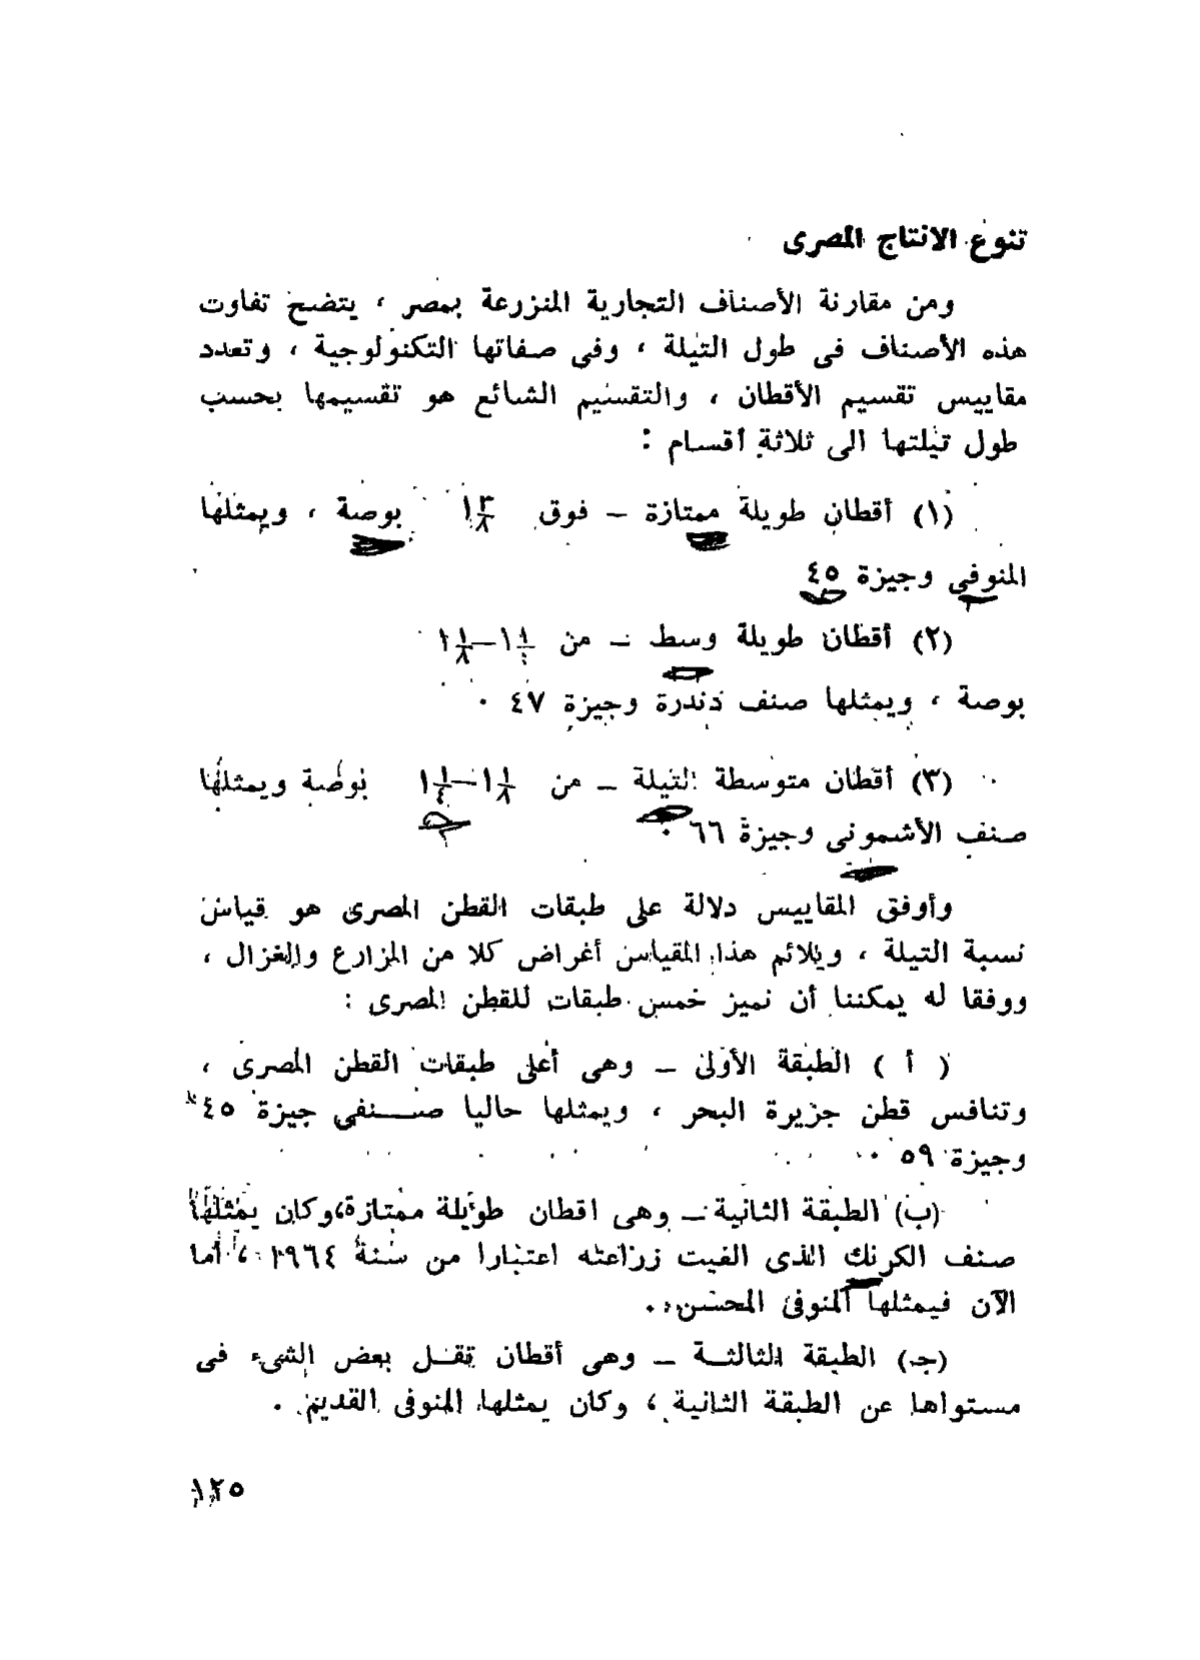 تنوع الانتاج المصرى
ومن مقارنة الأصناف التجارية المنزرعة بمصر ، يتضح تفاوت
هذه الأصناف فى طول التيلة ، وفى صفاتها التكنولوجية ، وتعدد
مقاييس تقسيم الأقطان ، والتقسيم الشائع هو تقسيمها بحسب
طول تيلتها الى ثلاثة أقسام :
(١) أقطان طويلة ممتازة – فوق ١ ٣/٨ بوصة ، ويمثلها
المنوفى وجيزة ٤٥
(٢) أقطان طويلة وسط – من ١ ١/٤–١ ١/٨
بوصة ، ويمثلها صنف دندرة وجيزة ٤٧ ٠
(٣) أقطان متوسطة التيلة – من ١ ١/٨–١ ١/٤ بوصة ويمثلها
صنف الأشمونى وجيزة ٦٦ ٠
وأوفق المقاييس دلالة على طبقات القطن المصرى هو قياس
نسبة التيلة ، ويلائم هذا المقياس أغراض كلا من المزارع والغزال ،
ووفقا له يمكننا أن نميز خمس طبقات للقطن المصرى :
( أ ) الطبقة الأولى – وهى أعلى طبقات القطن المصرى ،
وتنافس قطن جزيرة البحر ، ويمثلها حاليا صنفى جيزة ٤٥
وجيزة ٥٩ ٠
(ب) الطبقة الثانية – وهى اقطان طويلة ممتازة، وكان يمثلها
صنف الكرنك الذى الغيت زراعته اعتبارا من سنة ١٩٦٤ ، أما
الآن فيمثلها المنوفى المحسن ٠
(جـ) الطبقة الثالثة – وهى أقطان تقل بعض الشىء فى
مستواها عن الطبقة الثانية ، وكان يمثلها المنوفى القديم ٠
١٢٥